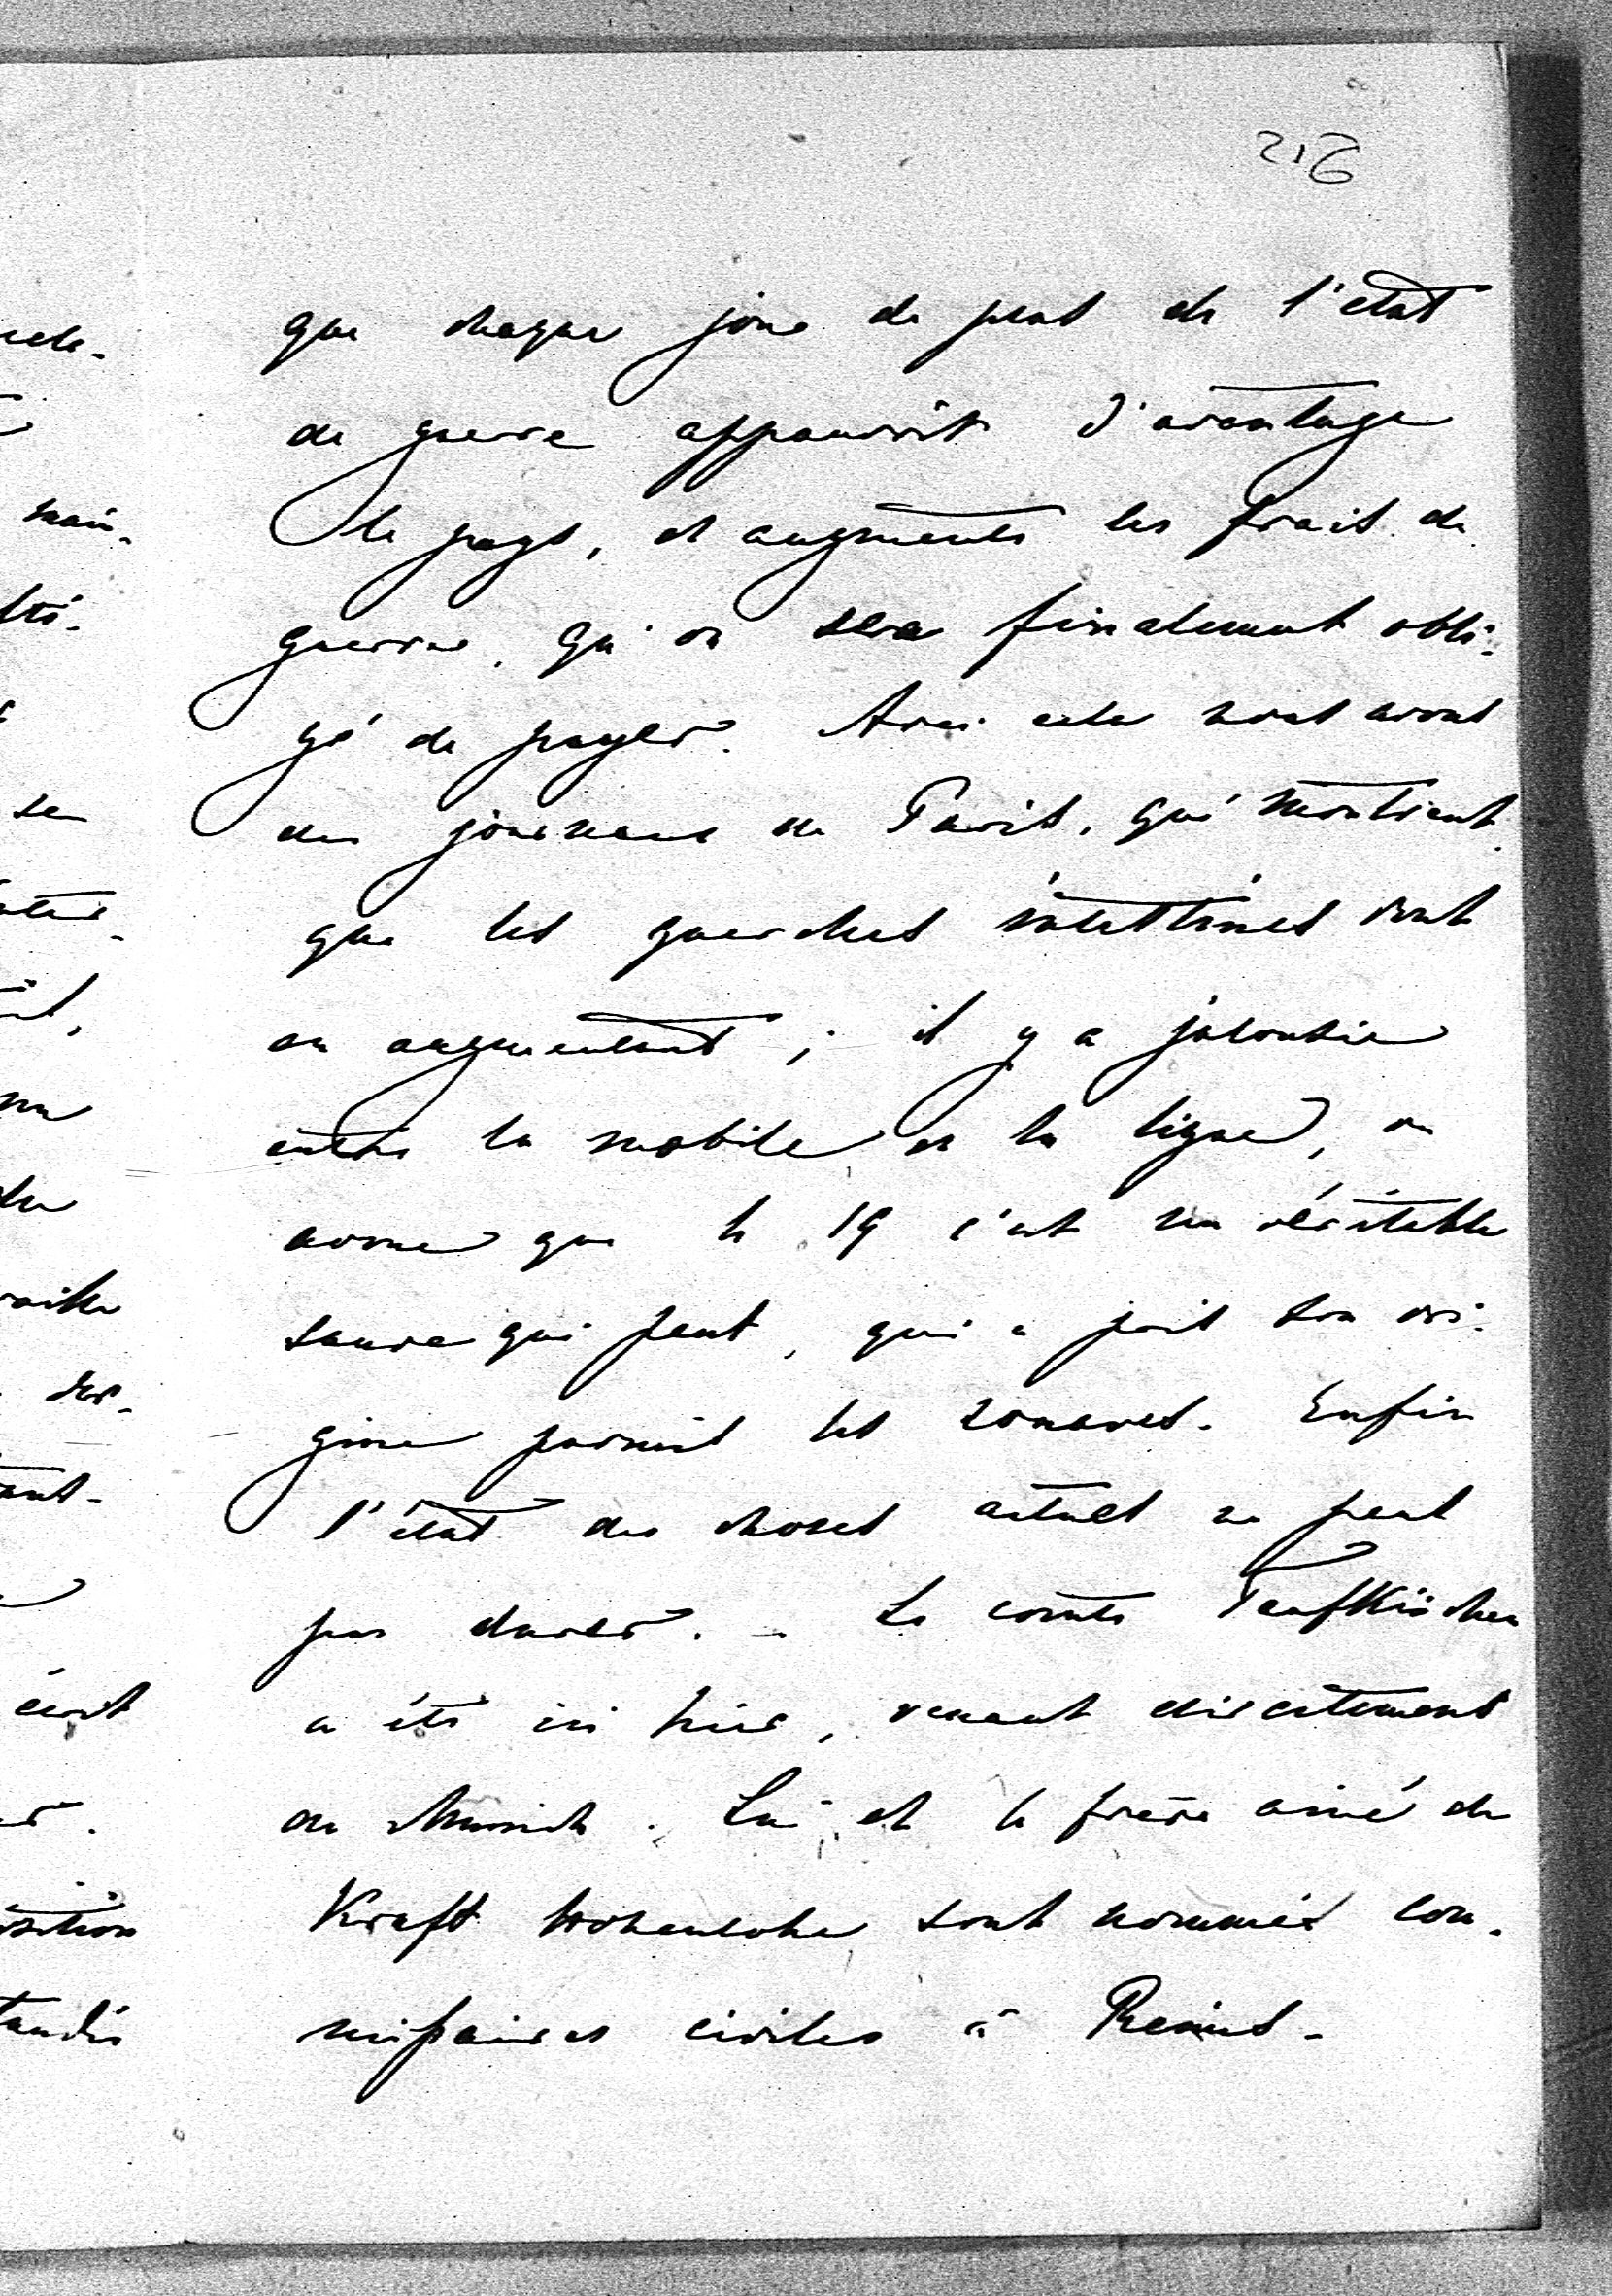 216
que chaque jour de plus de l'état
de guerre appauvrit d'avantage
le pays, et augmente les frais de
guerre, qu'on sera finalement obli-
gé de payer. Avec cela nous avons
des journaux de Paris, qui montrent
que les querelles intestines vont
en augmentant; il y a jalousie
entre la mobile et la ligne, on
avoue que le 19 c'est un véritable
sauve qui peut, qui a pris son ori-
gine parmis les zouaves. Enfin
l'état des choses actuel ne peut
pas durer. - Le comte Taufkirchen
a été ici hier, venant directement
de Munich. Lui et le frère ainé de
Kraft Hohenlohe sont nommés com-
missaires civiles à Reims.
cele-
main-
se
du
écrit
sition
tandis